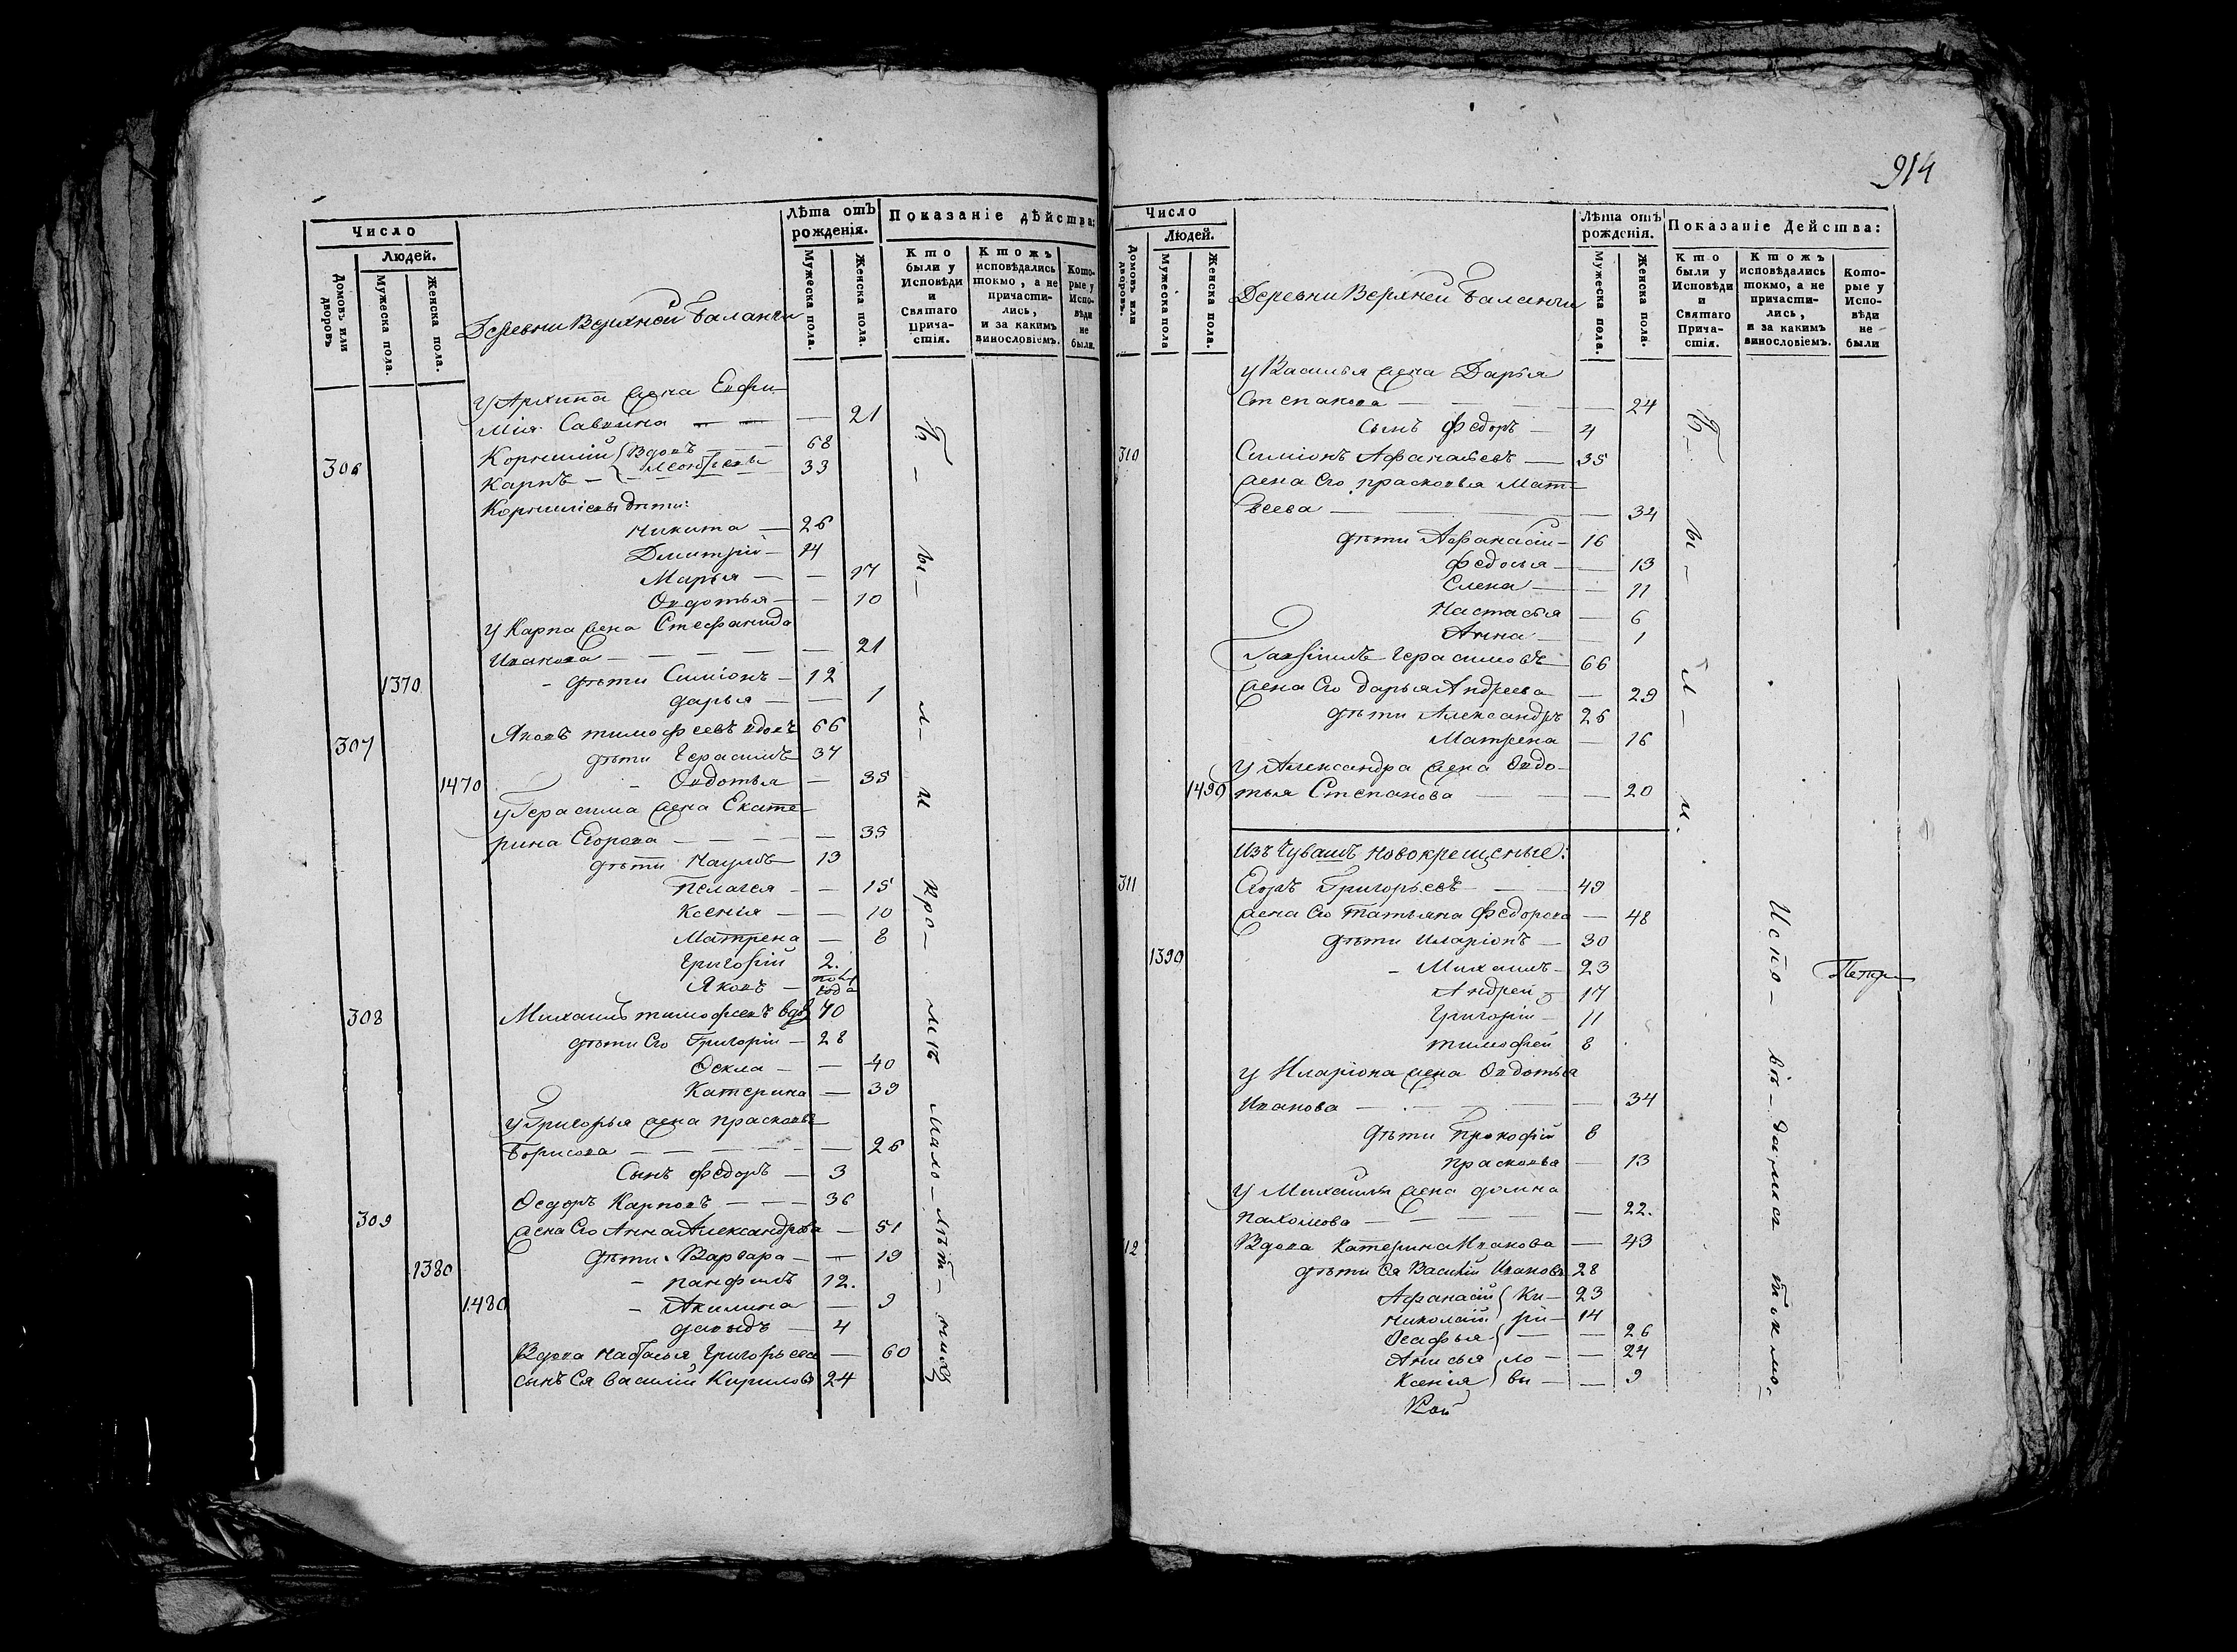 914
Число
Людей.
Домовъ или дворовъ
Мужеска пола.
Женска пола.
Деревни Верхней Баланчи
Лѣта отъ рожденія.
Мужеска пола.
Женска пола.
Показаніе дѣйства:
Кто были у Исповѣди и Святаго Прича-стія.
Ктожъ исповѣдались токмо, а не причасти-лись, и за какимъ винословіемъ.
Кото-рые у Испо-вѣди не были.
у Архипа жена Евфи-
мія Саввина — — — 21
306 Корнилій Вдовъ — 68
Карпъ — — 33
Корниліевы дѣти:
Никита — 26
Дмитрій — 14
Марья — — 17
Овдотья — — 10
у Карпа жена Стефанида
Иванова — — — — — 21
1370 дѣти Симіонъ — 12
дарья — — 1
307 Яковъ тимофеевъ вдовъ 66
дѣти Герасимъ 37
1470 - Овдотья — 35
у Герасима жена Екате-
рина Егорова — — — — 35
дѣти Наумъ 13
Пелагея — — 15
Ксенія — — 10
Матрена — 8
Григорій 2.
Яковъ — полгода
308 Михаилъ тимофеевъ вдов 70
дѣти Его Григорій — 28
Фекла — — 40
Катерина — 39
у Григорья жена прасковья
Борисова — — — — — 26
Сынъ Федоръ — 3
309 Федоръ Карповъ — — — 36
жена Его Анна Александрова — 51
дѣти Варвара — — 19
1380 - панфилъ 12.
1480 - Акилина — 9
давыдъ — 4
Вдова Наталья Григорьева — 60
сынъ Ея Василій Кириловъ 24
Бы — ли
Кро — мѣ мало — лѣт — нихъ
Число
Людей.
Домовъ или дворовъ.
Мужеска пола
Женска пола.
Деревни Верхней Баланчи
Лѣта отъ рожденія.
Мужеска пола.
Женска пола.
Показаніе Дейсшва:
Кто были у Исповѣди и Святаго Прича-стія.
Ктожъ исповѣдались токмо, а не причасти-лись, и за какимъ винословіемъ.
Кото-рые у Испо-вѣди не были
у Василья жена Дарья
Степанова — — — — 24
Сынъ Федоръ — 4
310 Симіонъ Афанасьевъ — 35
жена Его прасковья Мат-
веева — — — 34
дѣти Афанасій — 16
Федосья — — 13
Елена — — 11
Настасья — 6
Анна — — 1
Герасимовъ 66
жена Его Дарья Андреева — 29
дѣти Александръ 26
Матрена — 16
у Александра жена Овдо-
1490 тья Степанова — — — 20
Изъ Чувашъ новокрещеные:
311 Егоръ Григорьевъ — — 49
жена Его Татьяна Федорова — 48
дѣти Иларіонъ — 30
1390 - Михаилъ — 23
Андрей 17
Григорій — 11
тимофей 8
у Иларіона жена Овдотья
Иванова — — — — 34
дѣти Прокофій 8
Прасковья — 13
у Михаилы жена домна
пахомова — — — — 22.
12 Вдова Катерина Иванова — 43
дѣти Ея Василій Ивановъ 28
Афанасій Ки — 23
Николай ри — 14
Агафья — — 26
Анисья ло — — 24
Ксенія вы — — 9
Бы — л — и.
Испо — вѣ — дались токмо.